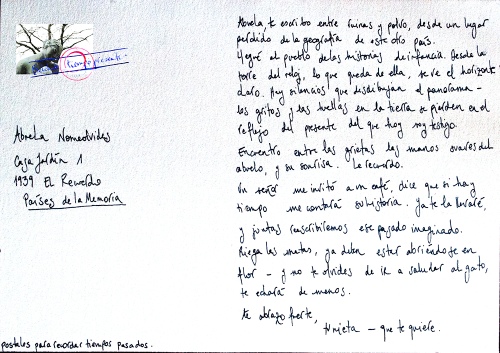 Puente presente.
Abuela Nomeolvides
Casa Jardín 1
1939 El Recuerdo
Países de la Memoria
postales para recordar tiempos pasados.
Abuela te escribo entre ruinas y polvo, desde un lugar
perdido de la geografía de este otro país.
Llegué al pueblo de las historias de infancia. Desde la
torre del reloj, lo que queda de ella, se ve el horizonte
claro. Hay silencios que desdibujan el panorama -
los gritos y las huellas en la tierra se pierden en el
reflejo del presente del que hoy soy testigo.
Encuentro entre las grietas las manos suaves del
abuelo, y su sonrisa. Le recuerdo.
Un señor me invitó a un café, dice que si hay
tiempo me contará su historia. Ya te la llevaré,
y juntas reescribiremos ese pasado imaginado.
Riega las matas, ya deben estar abriéndose en
flor - y no te olvides de ir a saludar al gato,
te echará de menos.
Te abrazo fuerte,
tu nieta - que te quiere.